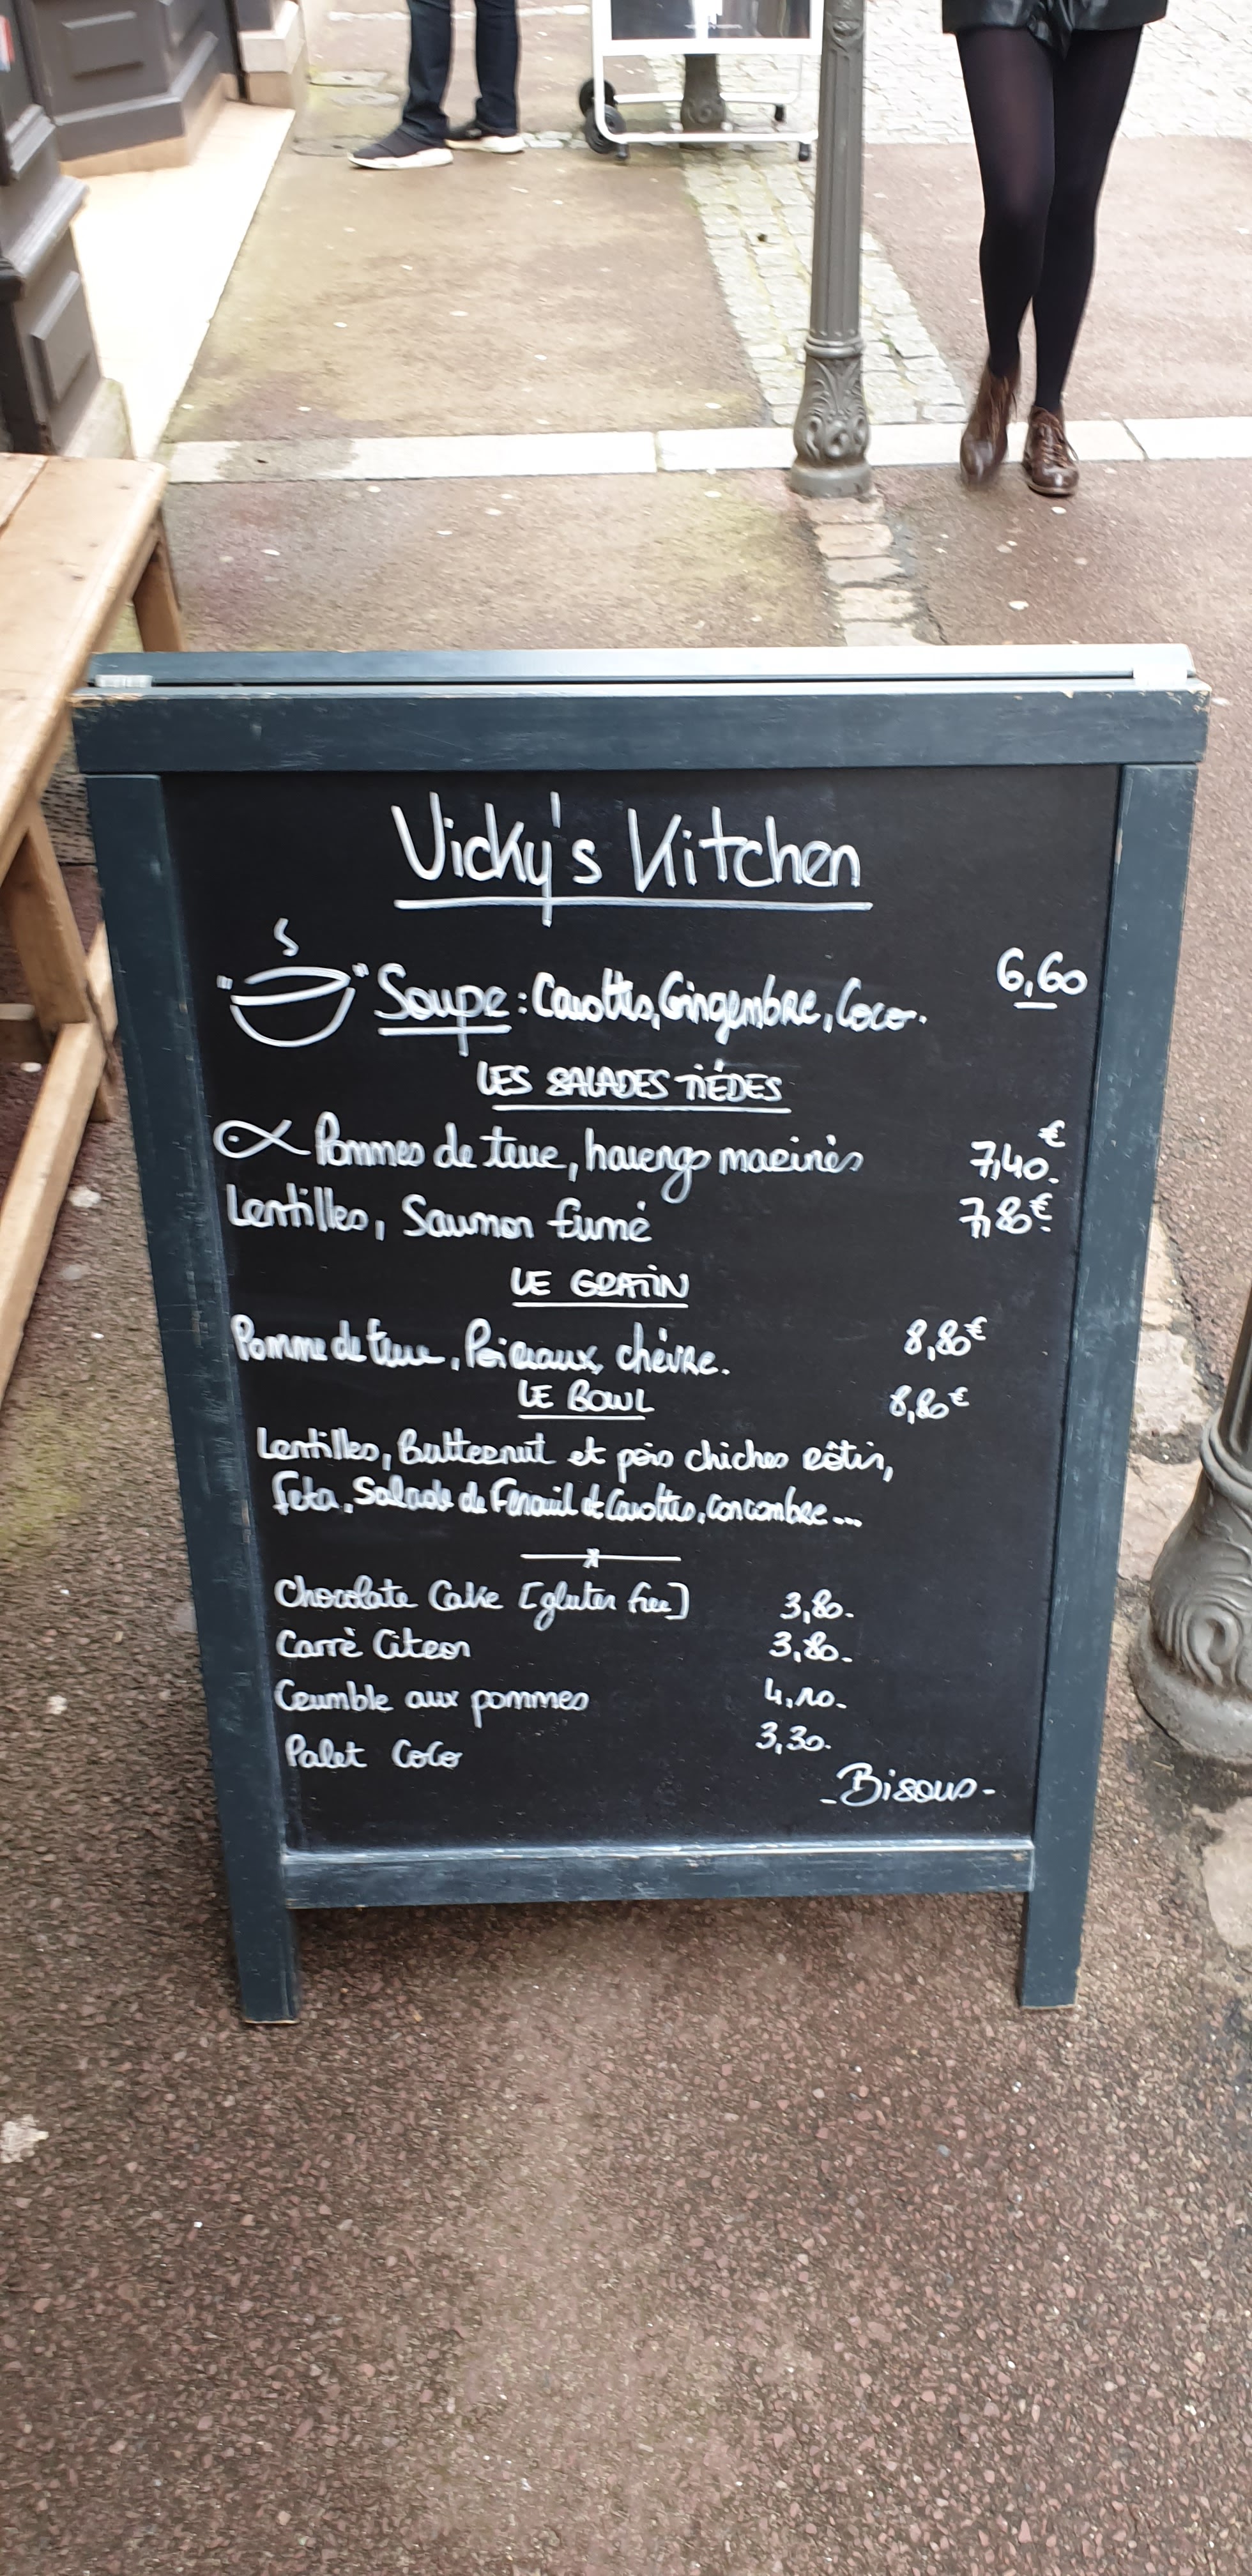 Vicky's Kitchen
" " Soupe : Carottes, Gingembre, Coco. 6,60
LES SALADES TIÈDES
Pommes de terre, harengs marinés 7,40€
Lentilles, Saumon fumé 7,80€
LE GRATIN
Pomme de terre, Poireaux, chèvre. 8,80€
LE BOWL 8,80€
Lentilles, Butternut et pois chiches rôtis,
feta, Salade de Fenouil et Carottes, concombre...
Chocolate Cake [gluten free] 3,80.
Carré Citron 3,80.
Crumble aux pommes 4,10.
Palet Coco 3,30.
- Bisous -